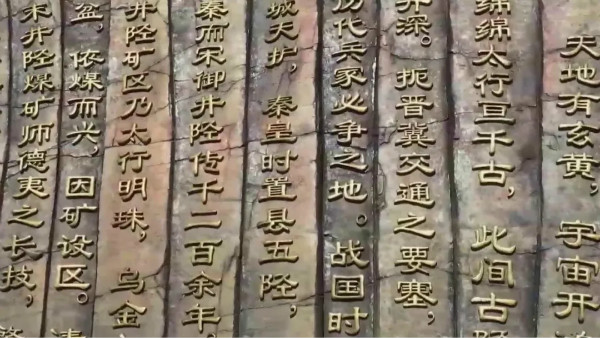 天地有玄黄，宇宙开
绵绵太行亘千古，此间古陉
开深。扼晋冀交通之要塞，
历代兵家必争之地。战国时
城天护，秦皇时置县五陉，
秦而宋御井陉传千二百余年。
井陉矿区乃太行明珠，乌金
盆，依煤而兴，因矿设区。清
末井陉煤矿师德夷之长技，